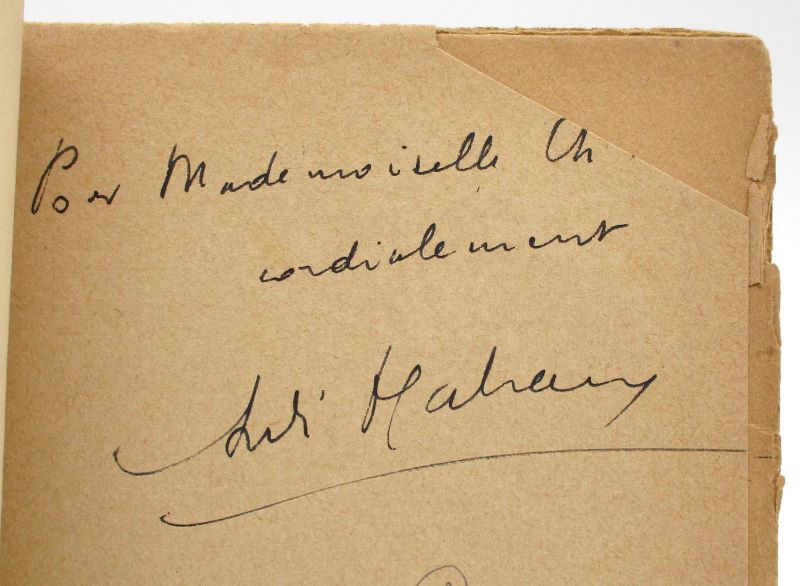 Pour Mademoiselle Ch
cordialement
André Malraux